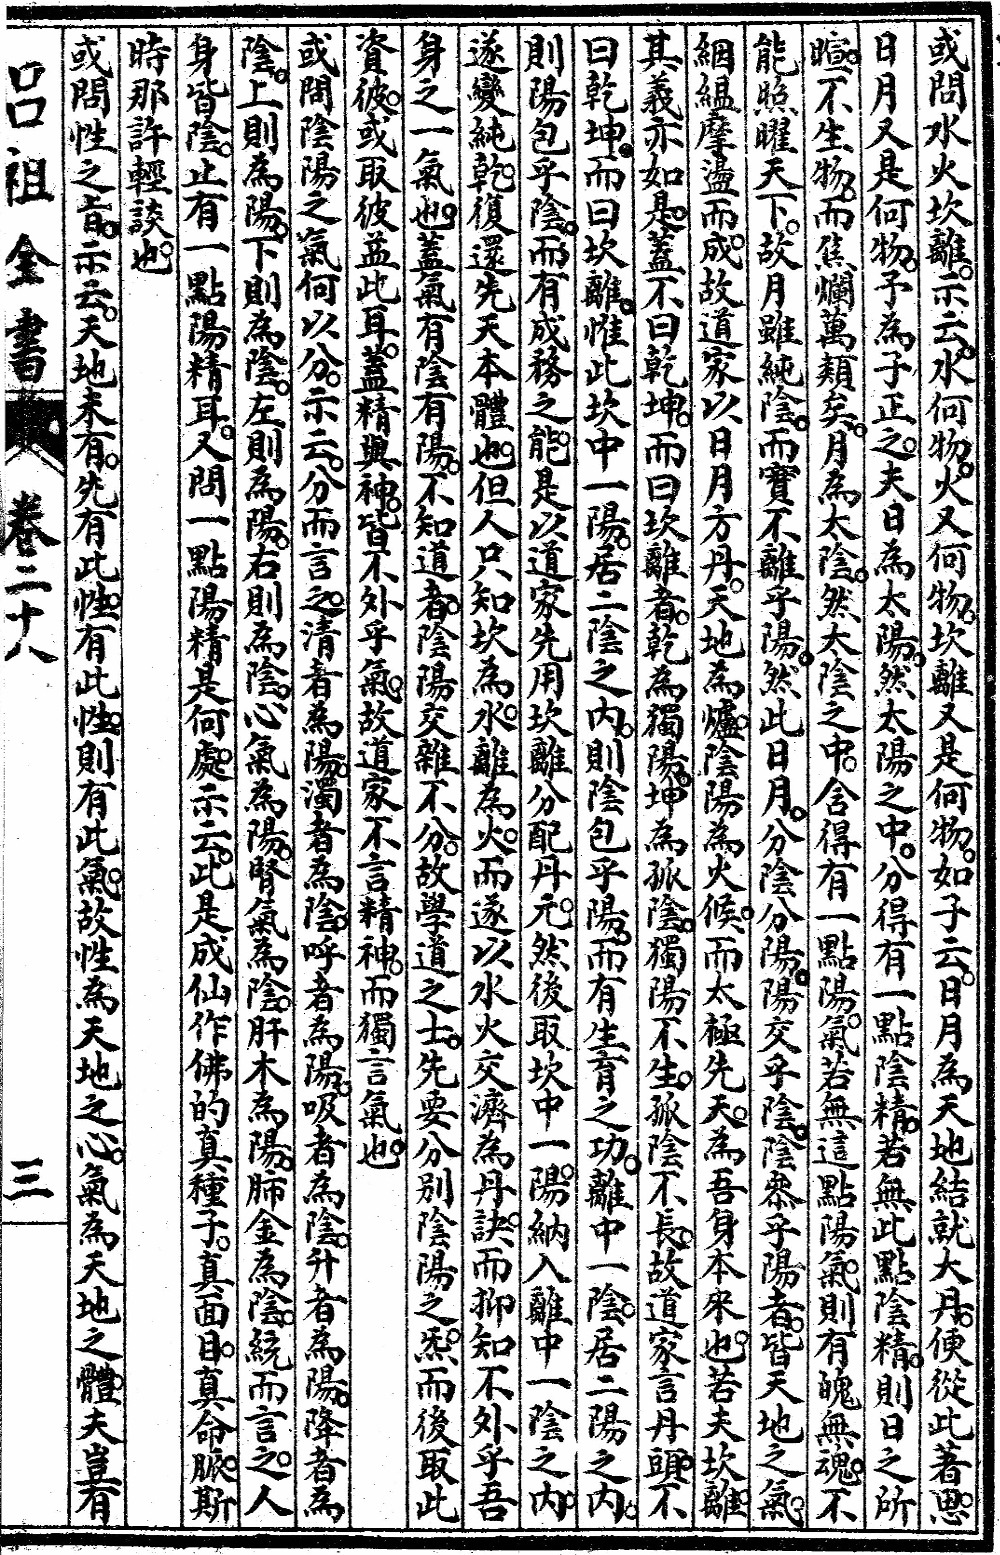 或問水火坎離。示云。水何物。火又何物。坎離又是何物。如子云。日月為天地結就大丹。便從此著思。
日月又是何物。予為子正之。夫日為太陽。然太陽之中。分得有一點陰精。若無此點陰精。則日之所
暄。不生物。而焦爛萬類矣。月為太陰。然太陰之中。含得有一點陽氣。若無這點陽氣。則有魄無魂。不
能照曜天下。故月雖純陰。而實不離乎陽。然此日月。分陰分陽。陽交乎陰。陰黍乎陽者。皆天地之氣。
絪縕摩盪而成。故道家以日月方丹。天地為爐。陰陽為火候。而太極先天。為吾身本來也。若夫坎離。
其義亦如是。蓋不曰乾坤。而曰坎離者。乾為獨陽。坤為孤陰。獨陽不生。孤陰不長。故道家言丹頭。不
曰乾坤。而曰坎離。惟此坎中一陽。居二陰之內。則陰包乎陽。而有生育之功。離中一陰。居二陽之內。
則陽包乎陰。而有成務之能。是以道家先用坎離分配丹元。然後取坎中一陽。納入離中一陰之內。
遂變純乾。復還先天本體也。但人只知坎為水。離為火。而遂以水火交濟為丹訣。而抑知不外乎吾
身之一氣也。蓋氣有陰有陽。不知道者。陰陽交雜不分。故學道之士。先要分別陰陽之炁。而後取此
資彼。或取彼益此耳。蓋精與神。皆不外乎氣。故道家不言精神。而獨言氣也。
或問陰陽之氣何以分。示云。分而言之。清者為陽。濁者為陰。呼者為陽。吸者為陰。升者為陽。降者為
陰。上則為陽。下則為陰。左則為陽。右則為陰。心氣為陽。腎氣為陰。肝木為陽。肺金為陰。統而言之。人
身皆陰。止有一點陽精耳。又問一點陽精是何處。示云。此是成仙作佛的真種子。真面目。真命脈。斯
時那許輕談也。
或問性之旨。示云。天地未有。先有此性。有此性。則有此氣。故性為天地之心。氣為天地之體。夫豈有
呂祖全書 卷二十八 三